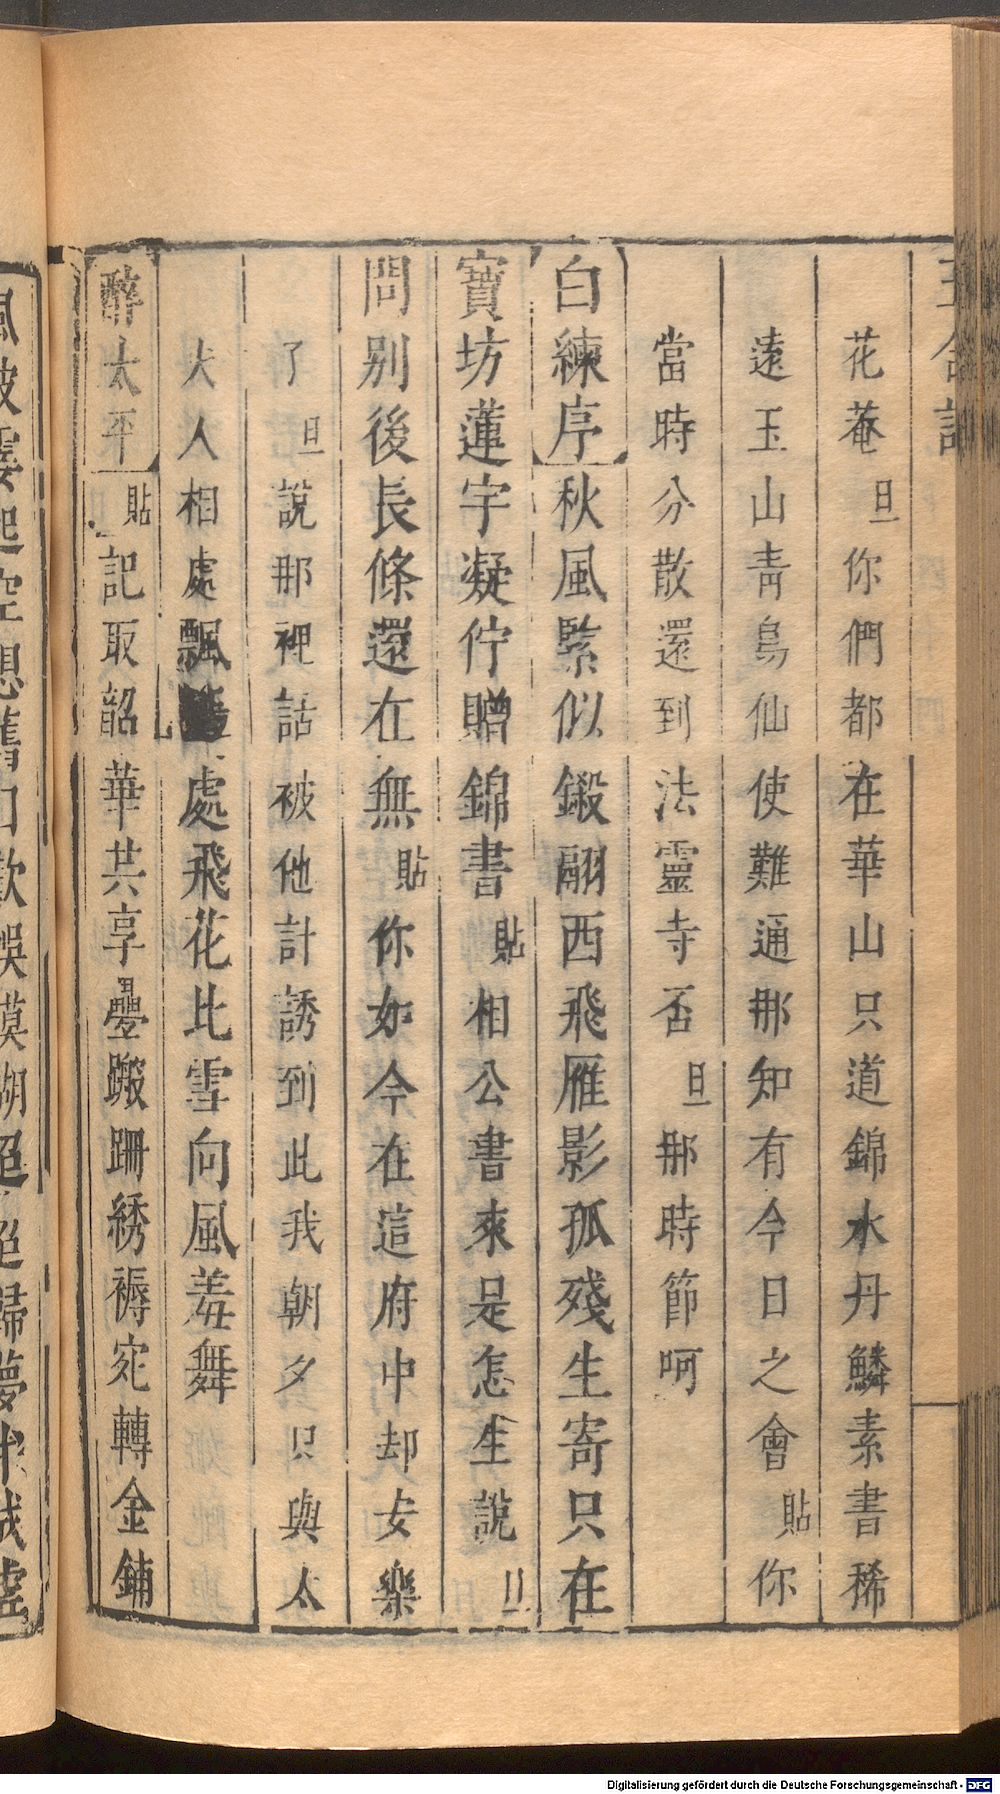 花菴旦你們都在華山只道錦水丹鱗素書稀
遠玉山靑鳥仙使難通那知有今日之會貼你
當時分散還到法靈寺否旦那時節呵
白練序秋風緊似鎩翮西飛雁影孤殘生寄只在
寶坊蓮宇凝佇贈錦書貼相公書來是怎生說
問別後長條還在無貼你如今在這府中却安樂
了旦說那裡話被他計誘到此我朝夕只與太
夫人相處飄處飛花比雪向風羞舞
醉太平貼記取韶華共享疊躞跚綉褥宛轉金鋪
Digitalisierung gefördert durch die Deutsche Forschungsgemeinschaft - DFG